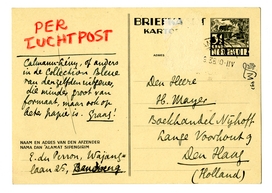 PER
LUCHTPOST
BRIEFKAART
KARTOE
Calmann-Lévy, of anders
in de Collection Bleue
van denzelfden uitgever,
die minder groot van
formaat, maar ook op
dik papier is. Graag!
NAAM EN ADRES VAN DEN AFZENDER
NAMA DAN 'ALAMAT SIPENGIRIM
E. du Perron, Wajang-
laan 25, Bandoeng.
Den Heere
H. Mayer
Boekhandel Nijhoff
Lange Voorhout 9
Den Haag
(Holland)